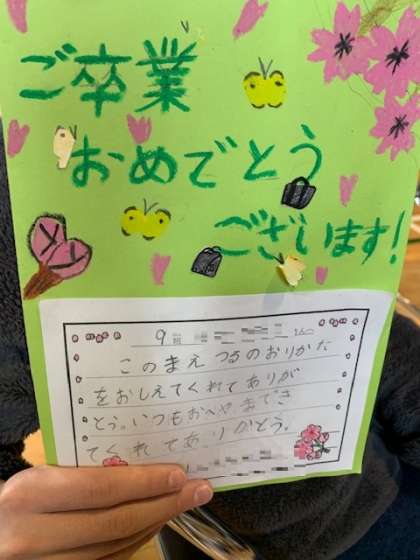 ご卒業
おめでとう
ございます!
9班
このまえつるのおりかた
をおしえてくれてありが
とう。いつもおへやまでき
てくれてありがとう。